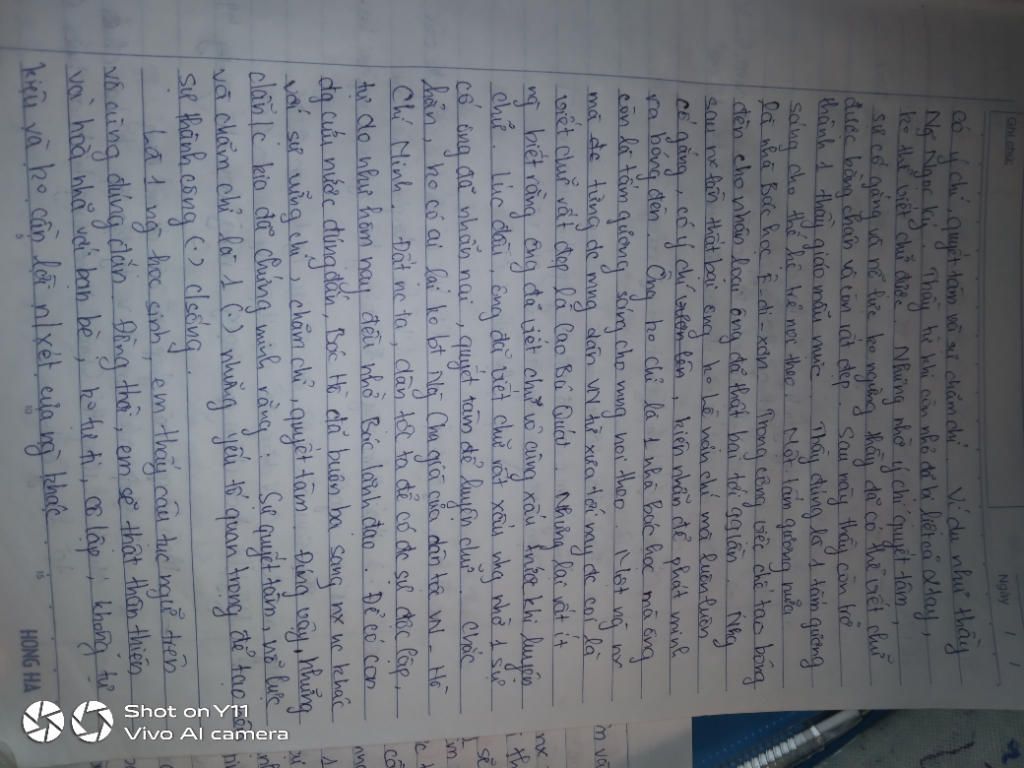 Ngày / /
có ý chí, quyết tâm và sự chăm chỉ. Ví dụ như thầy
Ng Ngọc Kí. Thầy bị khi còn nhỏ đã bị liệt cả 2 tay,
ko thể viết chữ được. Nhưng nhờ ý chí, quyết tâm,
sự cố gắng và nỗ lực ko ngừng thầy đã có thể viết chữ
được bằng chân và còn rất đẹp. Sau này thầy còn trở
thành 1 thầy giáo mẫu mực. Thầy đúng là 1 tấm gương
sáng cho thế hệ trẻ noi theo. Một tấm gương nữa
là nhà bác học Ê-đi-xơn. Trong công việc chế tạo bóng
đèn cho nhân loại ông đã thất bại tới 99 lần. Nhg
sau mỗi lần thất bại ông ko hề nản chí mà luôn luôn
cố gắng, có ý chí vươn lên, kiên nhẫn để phát minh
ra bóng đèn. Ông ko chỉ là 1 nhà bác học mà ông
còn là tấm gương sáng cho mng noi theo. Một ng nx
mà đc từng đc mng dân VN từ xưa tới nay đc coi là
viết chữ rất đẹp là Cao Bá Quát. Nhưng lại rất ít
ng biết rằng ông đã viết chữ vô cùng xấu trước khi luyện
chữ. Lúc đầu, ông đã viết chữ rất xấu nhg nhờ 1 sự
cố ông đã nhẫn nại, quyết tâm để luyện chữ. Chắc
hẳn, ko có ai lại ko bt vị Cha già của dân tộc VN - Hồ
Chí Minh. Đất nc ta, dân tộc ta để có đc sự độc lập,
tự do như hôm nay đều nhờ Bác lãnh đạo. Để có con
đg cứu nước đúng đắn, Bác Hồ đã buôn ba sang nx nc khác
với sự vững chí, chăm chỉ, quyết tâm. Đúng vậy, những
dẫn/c kia đã chứng minh rằng: Sự quyết tâm, nỗ lực
và chăm chỉ là 1 (.) những yếu tố quan trọng để tạo nên
sự thành công (.) c/sống.
Là 1 ng học sinh, em thấy câu tục ngữ trên
vô cùng đúng đắn. Đồng thời, em sẽ thật thân thiện
và hoà nhã với bạn bè, ko tự ti, cô lập, không tự
kiêu và ko cần lời n/xét của ng khác.
5 10 15 HONG HA
Shot on Y11
Vivo AI camera